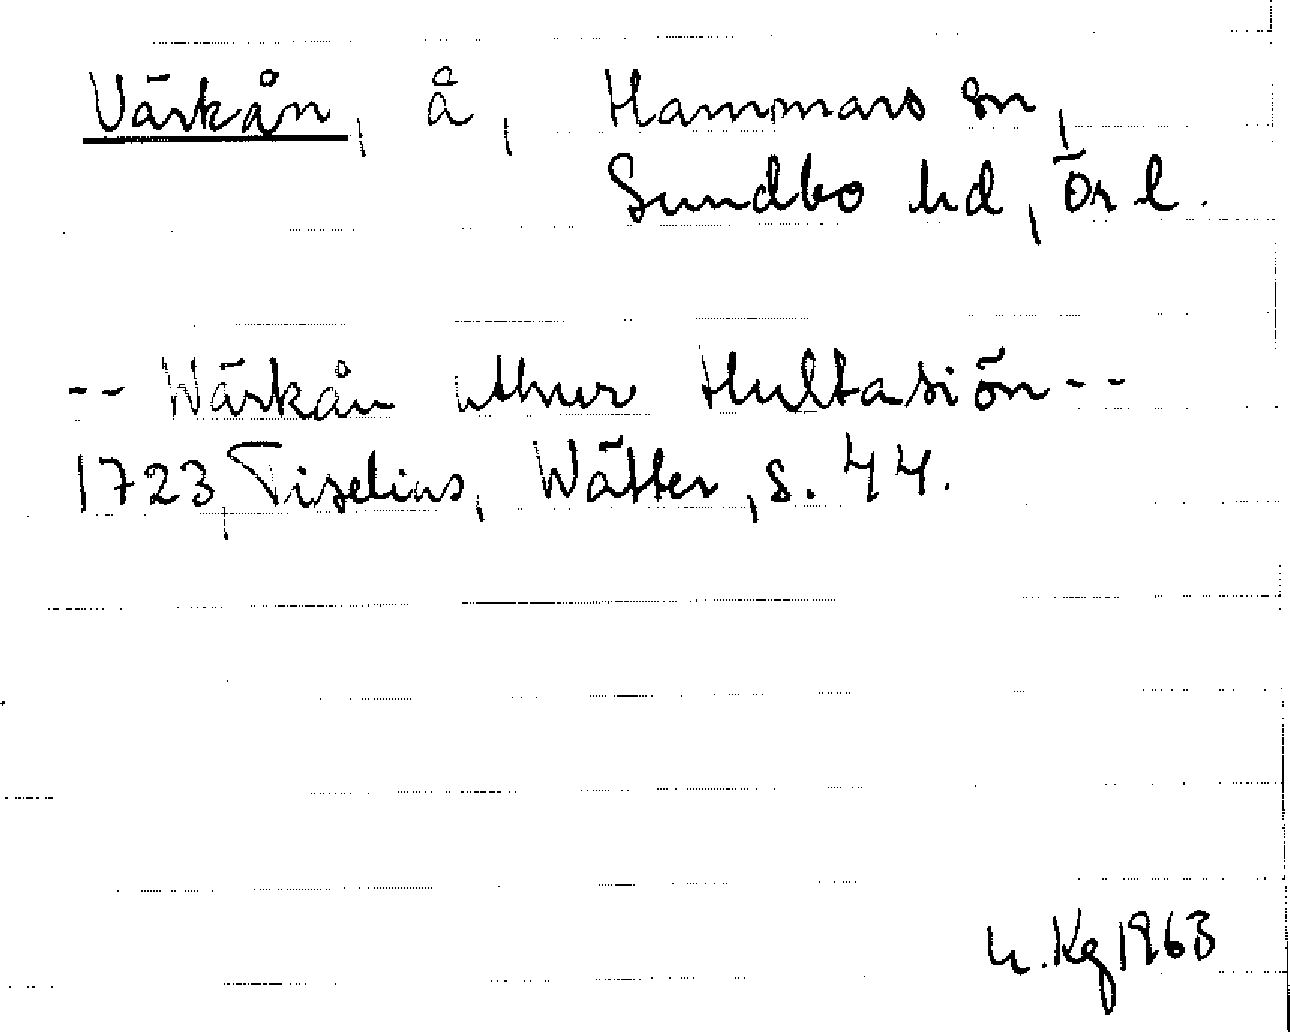 Värkån, å, Hammars sn,
Sundbo hd, Ör l.
-- Wärkån uthur Hultasiön --
1723, Tiselius, Wätter, s. 44.
Kg 1963